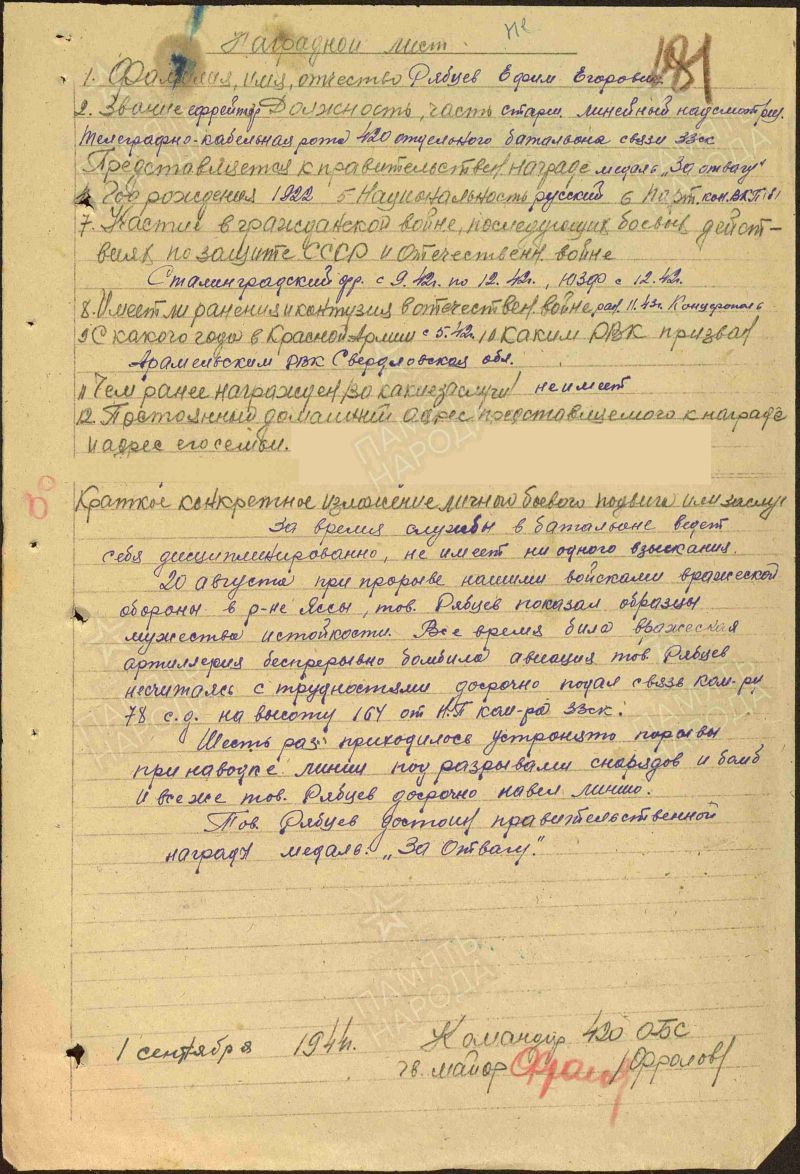 не
Наградной лист.
181
1. Фамилия, имя, отчество Рябцев Ефим Егорович
2. Звание ефрейтор Должность, часть старш. линейный надсмотрщ.
Телеграфно-кабельная рота 420 отдельного батальона связи 33ск
Представляется к правительствен награде медаль „За отвагу"
4 Год рождения 1922 5 Национальность русский 6 Парт. кан. ВКП(б)
7. Участие в гражданской войне, последующих боевых дейст-
виях по защите СССР и отечествен войне
Сталинградский фр. с 9.42г. по 12.42г., ЮЗФ с 12.42г.
8. Имеет ли ранения и контузия в отечествен войне, ран. 11.43г.
9 С какого года в Красной Армии с 5.42г. 10 Каким РВК призван
Арамельским РВК Свердловская обл.
11 Чем ранее награжден /за какие заслуги/ не имеет
12. Постоянный домашний адрес представляемого к награде
и адрес его семьи.
Краткое конкретное изложение личного боевого подвига или заслуг
За время службы в батальоне ведет
себя дисциплинированно, не имеет ни одного взыскания.
20 августа при прорыве нашими войсками вражеской
обороны в р-не Яссы, тов. Рябцев показал образцы
мужества и стойкости. Все время била вражеская
артиллерия беспрерывно бомбила авиация тов Рябцев
несчитаясь с трудностями досрочно подал связь ком-ру
78 с.д. на высоту 167 от Н.П ком-ра 33ск.
Шесть раз приходилось устронять порывы
при наводке линии под разрывами снарядов и бомб
и все же тов. Рябцев досрочно навел линию.
Тов. Рябцев достоин правительственной
награды медаль: „За Отвагу."
1 сентября 1944г. Командир 420 ОБС
гв. майор /Фролов/
ПАМЯТЬ
НАРОДА